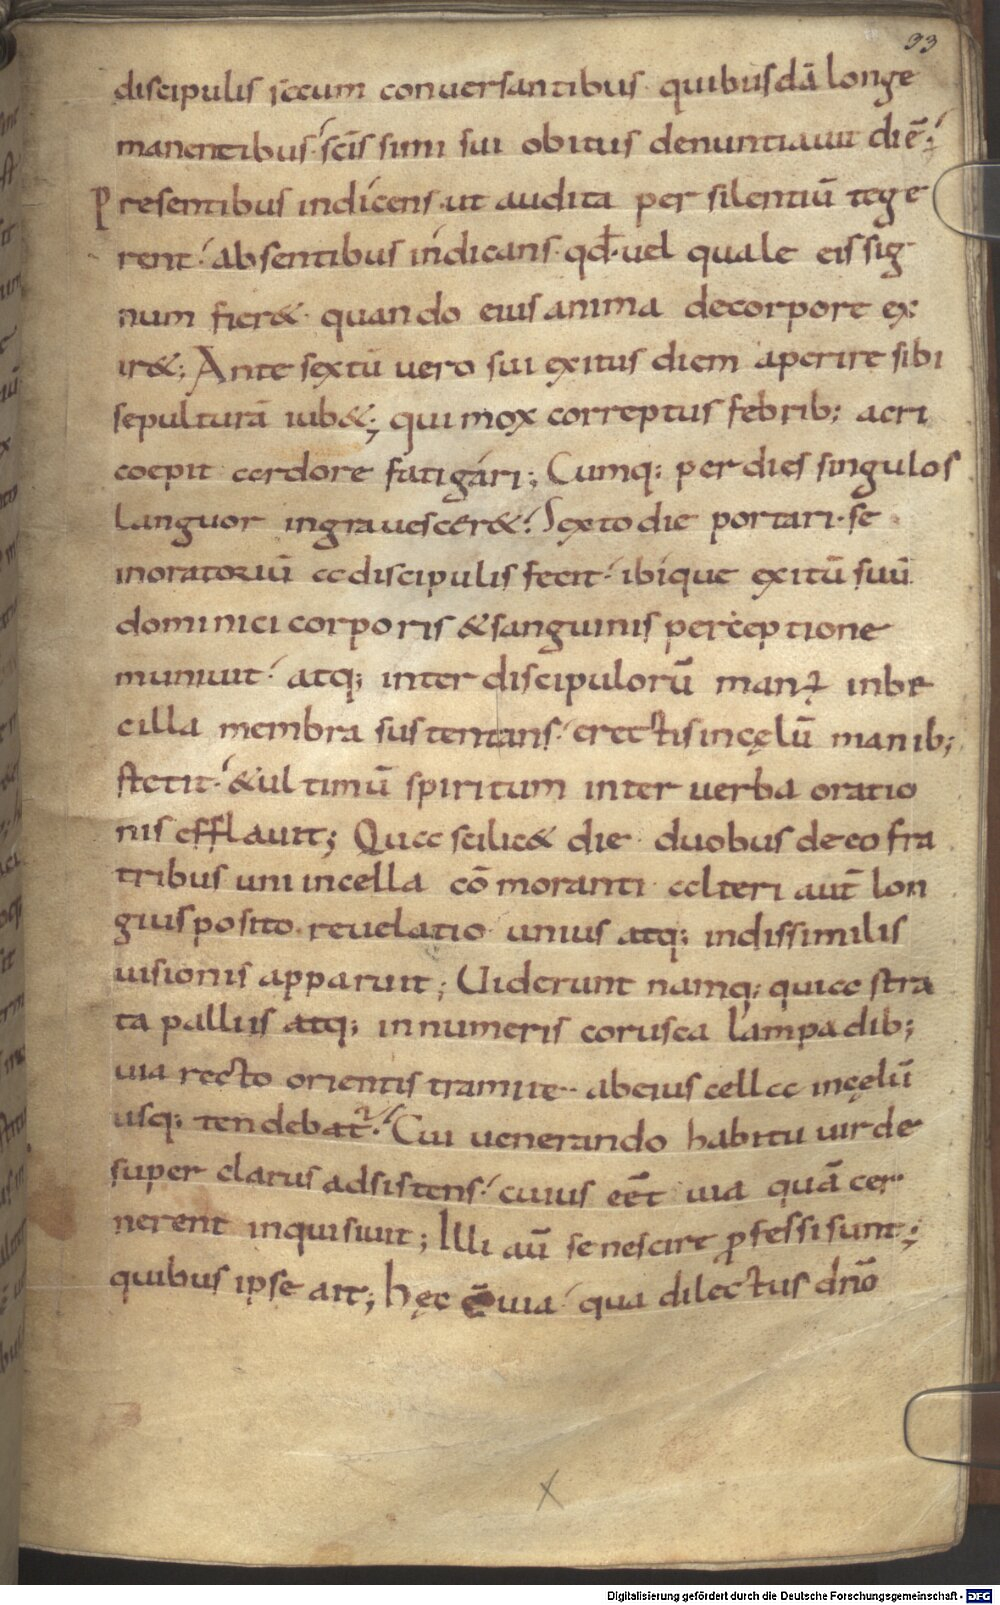 93
discipulis secum conuersantibus quibusdā longe
manentibus scis simi sui obitus denuntiauit diē;
Presentibus indicens ut audita per silentiū tege
rent absentibus indicans qđ uel quale eis sig
num fier& quando eius anima decorpore ex
ir&; Ante sextū vero sui exitus diem aperire sibi
sepulturā iub&; qui mox correptus febrib; acri
coepit ardore fatigari; Cumq; per dies singulos
languor ingrauescer& Sexto die portari se
inoratoriū adiscipulis fecit ibique exitū suū
dominici corporis & sanguinis perceptione
muniuit atq; inter discipulorū man; inbe
cilla membra sustentans erectis incęlū manib;
stetit & ultimū spiritum inter uerba oratio
nis efflauit; Qua scilic& die duobus deeo fra
tribus uni incella cōmoranti alteri aut̄ lon
gius posito reuelatio unius atq; indissimilis
uisionis apparuit; Uiderunt namq; quia stra
ta palliis atq; innumeris corusca lampadib;
uia recto orientis tramite abeius cella incęlū
usq; tendebat̄ Cui uenerando habitu uir de
super clarus adsistens cuius eēt uia quā cer
nerent inquisiuit; Illi aū se nescire ꝓfessi sunt;
quibus ipse ait; hęc ē uia qua dilectus dn̄o
Digitalisierung gefördert durch die Deutsche Forschungsgemeinschaft - DFG